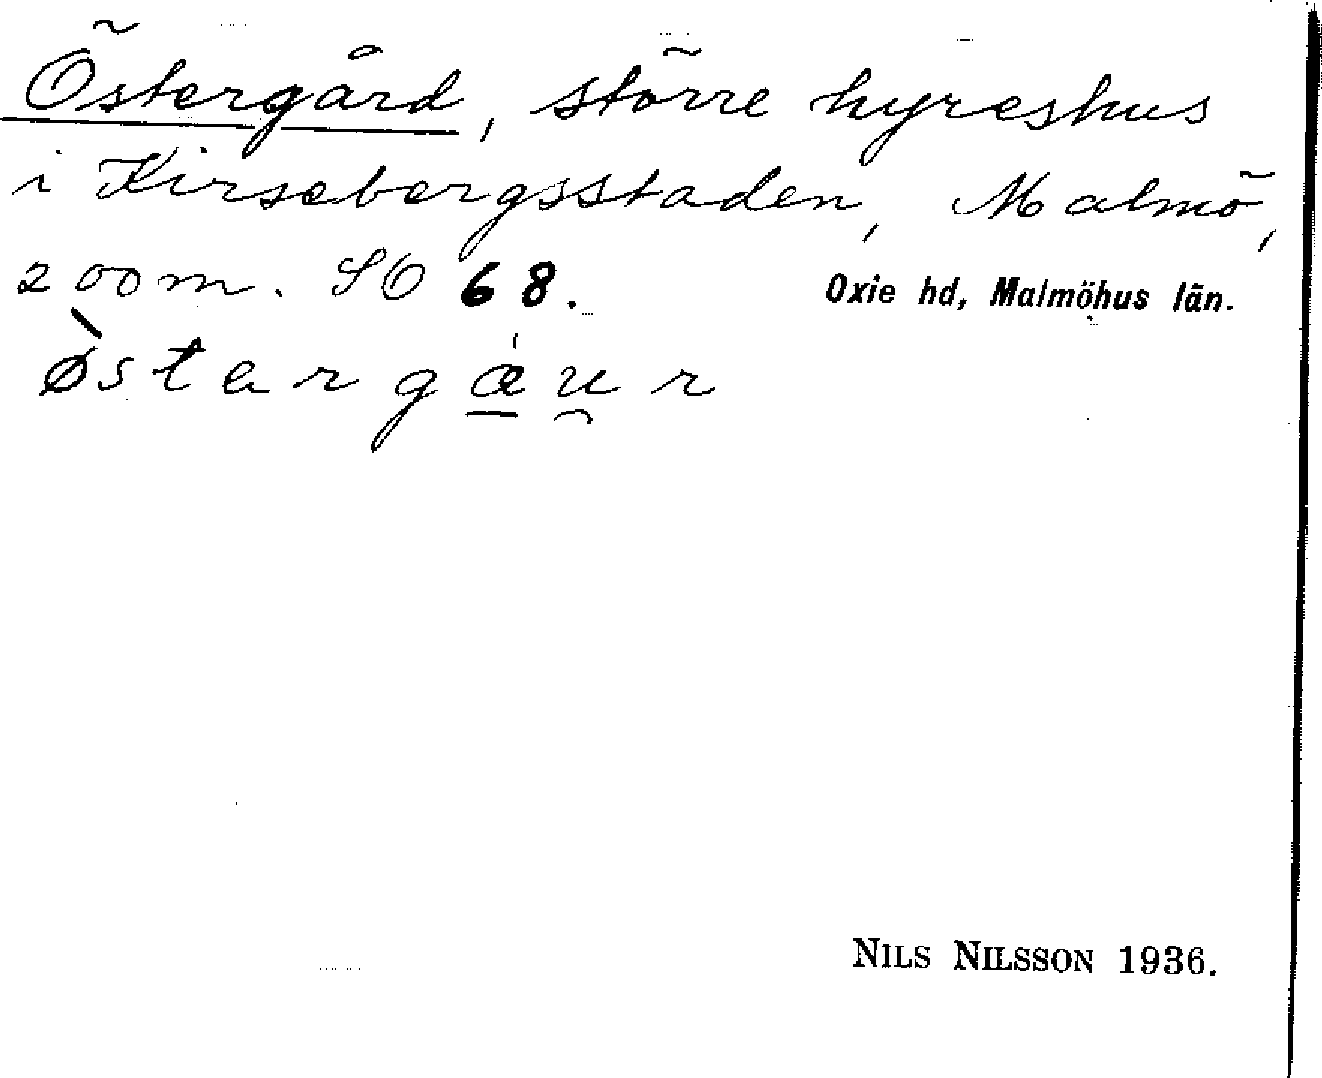 Östergård, större hyreshus
i Kirsebergsstaden, Malmö,
200 m. SO 68. Oxie hd, Malmöhus län.
ø̀stargǽ̲u̯r
NILS NILSSON 1936.